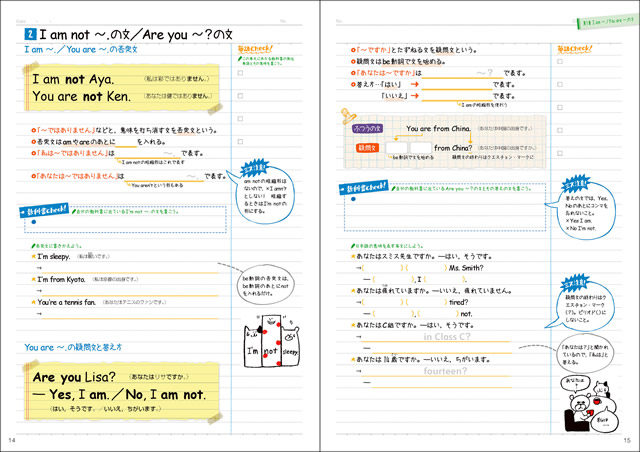 2 I am not ～.の文／Are you ～?の文
I am ～.／You are ～.の否定文
I am not Aya.
(私は彩ではありません。)
You are not Ken.
(あなたは健ではありません。)
「～ではありません」などと、意味を打ち消す文を否定文という。
否定文はamやareのあとに を入れる。
「私は～ではありません」は ～. で表す。
I am notの短縮形はこれで表す
「あなたは～ではありません」は ～. で表す。
You aren'tという形もある
教科書Check!
自分の教科書に出ているI'm not ～.の文を書こう。
否定文に書きかえよう。
I'm sleepy.
(私は眠いです。)
→
I'm from Kyoto.
(私は京都の出身です。)
→
You're a tennis fan.
(あなたはテニスのファンです。)
→
You are ～.の疑問文と答え方
Are you Lisa?
(あなたはリサですか。)
— Yes, I am.／No, I am not.
(はい、そうです。／いいえ、ちがいます。)
英語Check!
ココ注意!
am notの短縮形は
ないので、×I amn't
としない! 短縮す
るときはI'm notの
形にする。
be動詞の否定文は、
be動詞のあとにnot
を入れるだけ。
I'm not sleepy
14
No.
Date
英語Check!
「～ですか」とたずねる文を疑問文という。
疑問文はbe動詞で文を始める。
「あなたは～ですか」は ～? で表す。
答え方…「はい」→ で表す。
「いいえ」→ で表す。
I amの短縮形を使おう
ふつうの文
You are from China.
(あなたは中国の出身です。)
疑問文
from China?
(あなたは中国の出身ですか。)
be動詞で文を始める
疑問文の終わりはクエスチョン・マークに
教科書Check!
自分の教科書に出ているAre you ～?の文とその答えの文を書こう。
日本語の意味を表す英文にしよう。
あなたはスミス先生ですか。—はい、そうです。
( ) ( ) Ms. Smith?
— ( ), I ( ).
あなたは疲れていますか。—いいえ、疲れていません。
( ) ( ) tired?
— ( ), ( ) not.
あなたはC組ですか。—はい、そうです。
in Class C?
—
あなたは14歳ですか。—いいえ、ちがいます。
fourteen?
—
ココ注意!
答えの文では、Yes,
Noのあとにコンマを
忘れないこと。
×Yes I am.
×No I'm not.
ココ注意!
疑問文の終わりはク
エスチョン・マーク
(?)。ピリオド(.)に
しないこと。
「あなたは?」と聞かれ
ているので、「私は」と
答える。
あなたは
15